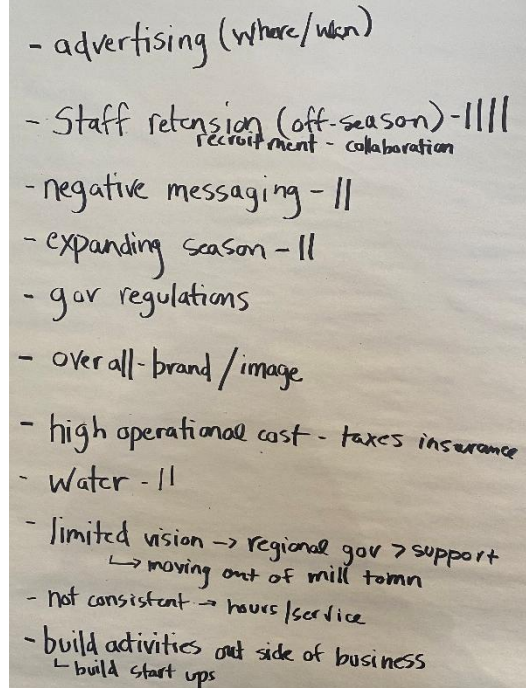 - advertising (where/wen)
- Staff retension (off-season) - ||||
recruitment - collaboration
- negative messaging - ||
- expanding season - ||
- gov regulations
- overall - brand/image
- high operational cost - taxes insurance
- Water - ||
- limited vision → regional gov > support
↳ moving out of mill town
- not consistent → hours/service
- build activities out side of business
└ build start ups